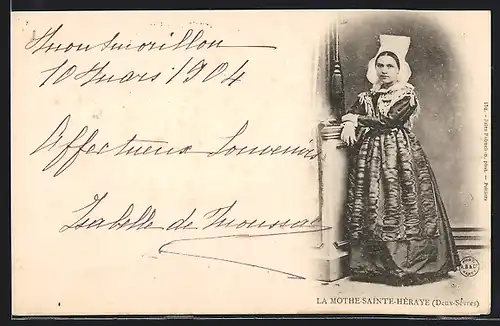 Montmorillon
10 Mars 1904
Affectueux Souvenirs
Isabelle de Moussac
LA MOTHE-SAINTE-HÉRAYE (Deux-Sèvres)
176. - Jules Robuchon, phot. - Poitiers